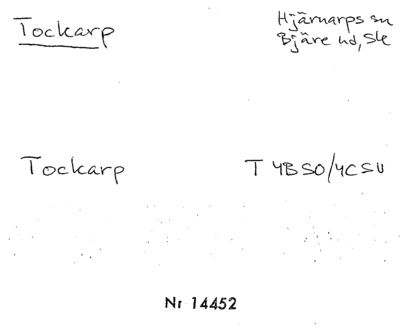 Tockarp
Hjärnarps sn
Bjäre hd, Sk
Tockarp
T 4B SO/4C SV
Nr 14452